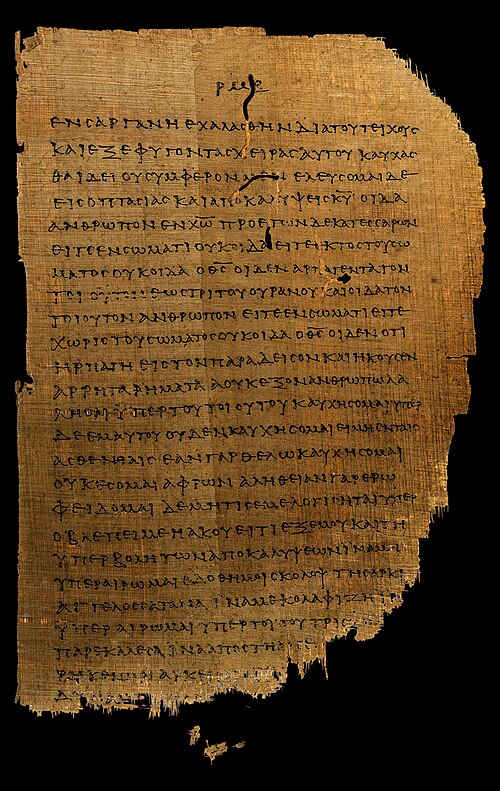 ΕΝ ϹΑΡΓΑΝΗ ΕΧΑΛΑϹΘΗΝ ΔΙΑ ΤΟΥ ΤΕΙΧΟΥϹ
ΚΑΙ ΕΞΕΦΥΓΟΝ ΤΑϹ ΧΕΙΡΑϹ ΑΥΤΟΥ ΚΑΥΧΑϹ
ΘΑΙ ΔΕΙ ΟΥ ϹΥΜΦΕΡΟΝ ΜΕΝ ΕΛΕΥϹΟΜΑΙ ΔΕ
ΕΙϹ ΟΠΤΑϹΙΑϹ ΚΑΙ ΑΠΟΚΑΛΥΨΕΙϹ Κ̅Υ̅ ΟΙΔΑ
ΑΝΘΡΩΠΟΝ ΕΝ Χ̅Ω̅ ΠΡΟ ΕΤΩΝ ΔΕΚΑΤΕϹϹΑΡΩΝ
ΕΙΤΕ ΕΝ ϹΩΜΑΤΙ ΟΥΚ ΟΙΔΑ ΕΙΤΕ ΕΚΤΟϹ ΤΟΥ ϹΩ
ΜΑΤΟϹ ΟΥΚ ΟΙΔΑ Ο Θ̅Ϲ̅ ΟΙΔΕΝ ΑΡΠΑΓΕΝΤΑ ΤΟΝ
ΤΟΙΟΥΤΟΝ ΕΩϹ ΤΡΙΤΟΥ ΟΥΡΑΝΟΥ ΚΑΙ ΟΙΔΑ ΤΟΝ
ΤΟΙΟΥΤΟΝ ΑΝΘΡΩΠΟΝ ΕΙΤΕ ΕΝ ϹΩΜΑΤΙ ΕΙΤΕ
ΧΩΡΙϹ ΤΟΥ ϹΩΜΑΤΟϹ ΟΥΚ ΟΙΔΑ Ο Θ̅Ϲ̅ ΟΙΔΕΝ ΟΤΙ
ΗΡΠΑΓΗ ΕΙϹ ΤΟΝ ΠΑΡΑΔΕΙϹΟΝ ΚΑΙ ΗΚΟΥϹΕΝ
ΑΡΡΗΤΑ ΡΗΜΑΤΑ Α ΟΥΚ ΕΞΟΝ ΑΝΘΡΩΠΩ ΛΑ
ΛΗϹΑΙ ΥΠΕΡ ΤΟΥ ΤΟΙΟΥΤΟΥ ΚΑΥΧΗϹΟΜΑΙ ΥΠΕΡ
ΔΕ ΕΜΑΥΤΟΥ ΟΥΔΕΝ ΚΑΥΧΗϹΟΜΑΙ ΕΙ ΜΗ ΕΝ ΤΑΙϹ
ΑϹΘΕΝΕΙΑΙϹ ΕΑΝ ΓΑΡ ΘΕΛΩ ΚΑΥΧΗϹΟΜΑΙ
ΟΥΚ ΕϹΟΜΑΙ ΑΦΡΩΝ ΑΛΗΘΕΙΑΝ ΓΑΡ ΕΡΩ
ΦΕΙΔΟΜΑΙ ΔΕ ΜΗ ΤΙϹ ΕΜΕ ΛΟΓΙϹΗΤΑΙ ΥΠΕΡ
Ο ΒΛΕΠΕΙ ΜΕ Η ΑΚΟΥΕΙ ΤΙ ΕΞ ΕΜΟΥ ΚΑΙ ΤΗ
ΥΠΕΡΒΟΛΗ ΤΩΝ ΑΠΟΚΑΛΥΨΕΩΝ ΙΝΑ ΜΗ
ΥΠΕΡΑΙΡΩΜΑΙ ΕΔΟΘΗ ΜΟΙ ϹΚΟΛΟΨ ΤΗ ϹΑΡΚΙ
ΑΓΓΕΛΟϹ ϹΑΤΑΝΑ ΙΝΑ ΜΕ ΚΟΛΑΦΙΖΗ Ι
ΥΠΕΡΑΙΡΩΜΑΙ ΥΠΕΡ ΤΟΥΤΟΥ ΤΡΙϹ
ΠΑΡΕΚΑΛΕϹΑ ΙΝΑ ΑΠΟϹΤΗ
ΡΗΚΕΝ ΜΟΙ ΑΡΚΕΙ